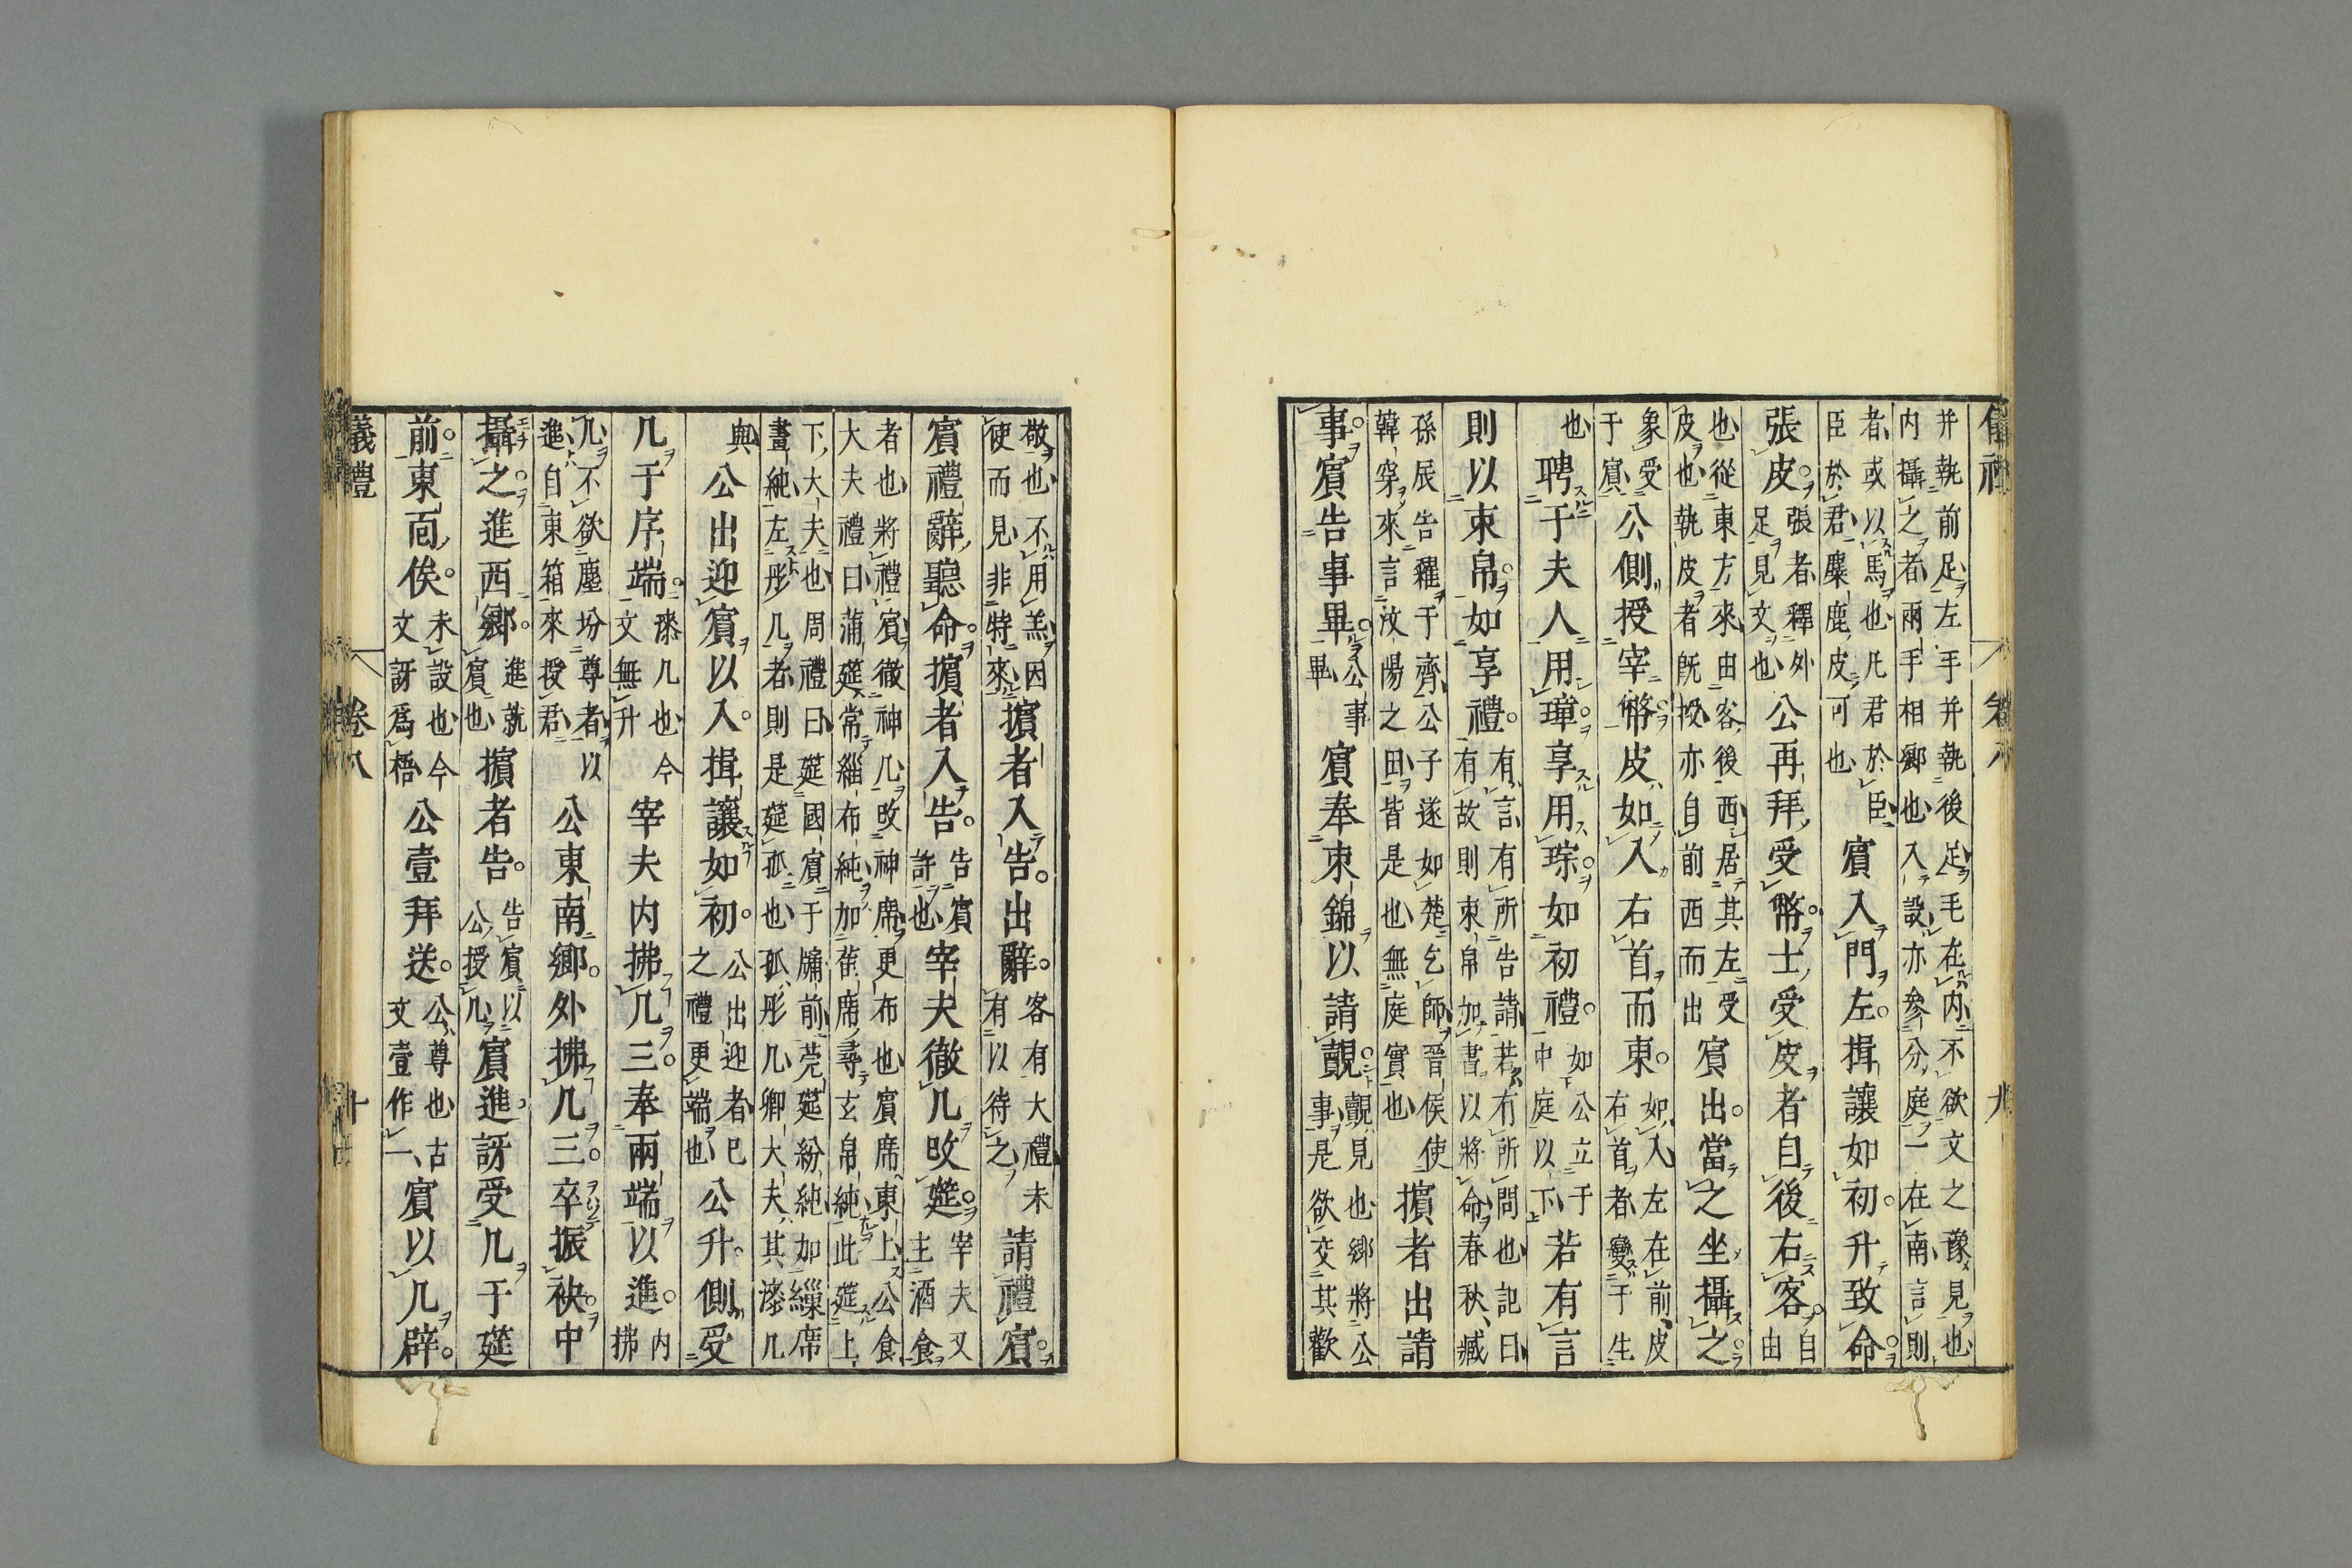 卷八 九
并執前足左手并執後足毛在内不欲文之豫見也
内攝之者兩手相鄉也入設亦參分庭一在南言則
者或以馬也凡君於臣
臣於君麋鹿皮可也
賓入門左揖讓如初升致命
張皮
張者釋外
足見文也
公再拜受幣士受皮者自後右客
自
由
也從東方來由客後西居其左受
皮也執皮者既授亦自前西而出
賓出當之坐攝之
象受
于賓
公側授宰幣皮如入右首而東
如入左在前皮
右首者變于生
也
聘于夫人用璋享用琮如初禮
如公立于
中庭以下
若有言
則以束帛如享禮
有言有所告請若有所問也記曰
有故則束帛加書以將命春秋臧
孫辰告糴于齊公子遂如楚乞師晉侯使
韓穿來言汶陽之田皆是也無庭實也
擯者出請
事賓告事畢
公事
畢
賓奉束錦以請覿
覿見也鄉將公
事是欲交其歡
敬也不用羔因
使而見非特來
擯者入告出辭
客有大禮未
有以待之
請禮賓
賓禮辭聽命擯者入告
告賓
許也
宰夫徹几改筵
宰夫又
主酒食
者也將禮賓徹神几改神席更布也賓席東上公食
大夫禮曰蒲筵常緇布純加萑席尋玄帛純此筵上
下大夫也周禮曰筵國賓于牖前莞筵紛純加繅席
畫純左彤几者則是筵孤也孤彤几卿大夫其漆几
與
公出迎賓以入揖讓如初
公出迎者已
之禮更端也
公升側受
几于序端
漆几也今
文無升
宰夫内拂几三奉兩端以進
内
拂
几不欲塵坋尊者以
進自東箱來授君
公東南鄉外拂几三卒振袂中
攝之進西鄉
進就
賓也
擯者告
告賓以
公授几
賓進訝受几于筵
前東面俟
未設也今
文訝爲梧
公壹拜送
公尊也古
文壹作一
賓以几辟
儀禮 卷八 十